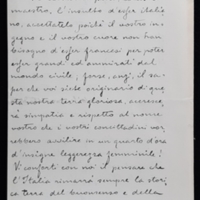 maestro, l'insulto di esser italia
no, accettatelo poichè il nostro in
gegno e il nostro cuore non han
bisogno di esser francesi per poter
esser grandi ed ammirati dal
mondo civile, forse, anzi, il sa
per che voi siete originario di que
sta nostra terra gloriosa, accresce
rà simpatia e rispetto al nome
nostro che i nostri concittadini vor
rebbero avvilire in un quarto d'ora
d'insigne leggerezza femminile!
Vi conforti con noi il pensare che
l'Italia rimarrà sempre la stes
sa terra del buonsenso e della